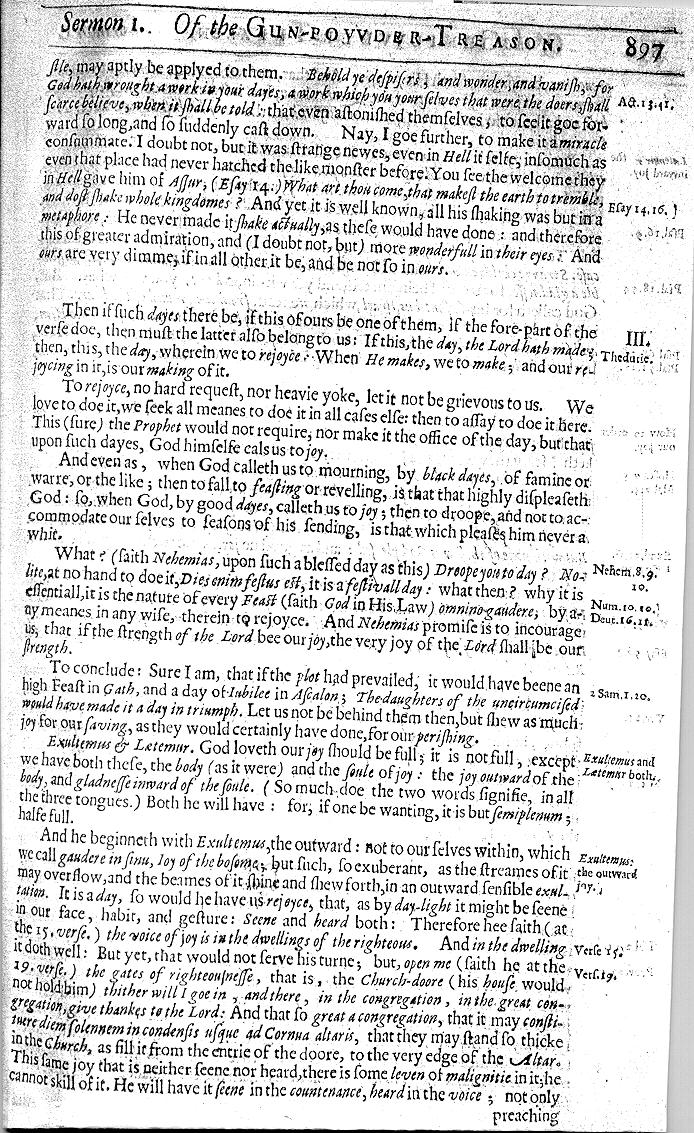 Sermon 1. Of the GUN-POVVDER-TREASON. 897
ſtle, may aptly be applyed to them. Behold ye deſpiſers, and wonder, and vaniſh, for
God hath wrought a work in your dayes, a work which you your ſelves that were the doers, ſhall
ſcarce believe, when it ſhall be told: that even aſtoniſhed themſelves, to ſee it goe for-
Act. 13. 41.
ward ſo long, and ſo ſuddenly caſt down. Nay, I goe further, to make it a miracle
conſummate. I doubt not, but it was ſtrange newes, even in Hell it ſelfe, inſomuch as
even that place had never hatched the like monſter before. You ſee the welcome they
in Hell gave him of Aſſur, (Eſay 14.) What art thou come, that makeſt the earth to tremble,
and doſt ſhake whole kingdomes? And yet it is well known, all his ſhaking was but in a
Eſay 14. 16.
metaphore: He never made it ſhake actually, as theſe would have done: and therefore
this of greater admiration, and (I doubt not, but) more wonderfull in their eyes: And
ours are very dimme, if in all other it be, and be not ſo in ours.
Then if ſuch dayes there be, if this of ours be one of them, if the fore-part of the
verſe doe, then muſt the latter alſo belong to us: If this, the day, the Lord hath made;
III.
then, this, the day, wherein we to rejoyce: When He makes, we to make; and our re-
The dutie.
joycing in it, is our making of it.
To rejoyce, no hard requeſt, nor heavie yoke, let it not be grievous to us. We
love to doe it, we ſeek all meanes to doe it in all caſes elſe: then to aſſay to doe it here.
This (ſure) the Prophet would not require, nor make it the office of the day, but that
upon ſuch dayes, God himſelfe cals us to joy.
And even as, when God calleth us to mourning, by black dayes, of famine or
warre, or the like; then to fall to feaſting or revelling, is that that highly diſpleaſeth
God: ſo, when God, by good dayes, calleth us to joy; then to droope, and not to ac-
commodate our ſelves to ſeaſons of his ſending, is that which pleaſes him never a
whit.
What? (ſaith Nehemias, upon ſuch a bleſſed day as this) Droope you to day? No-
Nehem. 8. 9.
lite, at no hand to doe it, Dies enim feſtus eſt, it is a feſtivall day: what then? why it is
10.
eſſentiall, it is the nature of every Feaſt (ſaith God in His Law) omnino gaudere, by a-
Num. 10. 10.
ny meanes in any wiſe, therein to rejoyce. And Nehemias promiſe is to incourage
Deut. 16. 11.
us, that if the ſtrength of the Lord bee our joy, the very joy of the Lord ſhall be our
ſtrength.
To conclude: Sure I am, that if the plot had prevailed, it would have beene an
high Feaſt in Gath, and a day of Iubilee in Aſcalon; The daughters of the uncircumciſed
2 Sam. 1. 20.
would have made it a day in triumph. Let us not be behind them then, but ſhew as much
joy for our ſaving, as they would certainly have done, for our periſhing.
Exultemus & Lætemur. God loveth our joy ſhould be full; it is not full, except
Exultemus and
we have both theſe, the body (as it were) and the ſoule of joy: the joy outward of the
Lætemur both.
body, and gladneſſe inward of the ſoule. (So much doe the two words ſignifie, in all
the three tongues.) Both he will have: for, if one be wanting, it is but ſemiplenum;
halfe full.
And he beginneth with Exultemus, the outward: not to our ſelves within, which
Exultemus:
we call gaudere in ſinu, Ioy of the boſome, but ſuch, ſo exuberant, as the ſtreames of it
the outward
may overflow, and the beames of it ſhine and ſhew forth, in an outward ſenſible exul-
joy.
tation. It is a day, ſo would he have us rejoyce, that, as by day-light it might be ſeene
in our face, habit, and geſture: Seene and heard both: Therefore hee ſaith (at
the 15. verſe.) the voice of joy is in the dwellings of the righteous. And in the dwelling
Verſe 15.
it doth well: But yet, that would not ſerve his turne; but, open me (ſaith he at the
19. verſe.) the gates of righteouſneſſe, that is, the Church-doore (his houſe would
Verſ. 19.
not hold him) thither will I goe in, and there, in the congregation, in the great con-
gregation, give thankes to the Lord: And that ſo great a congregation, that it may conſti-
tuere diem ſolennem in condenſis uſque ad Cornua altaris, that they may ſtand ſo thicke
in the Church, as fill it from the entrie of the doore, to the very edge of the Altar.
This ſame joy that is neither ſeene nor heard, there is ſome leven of malignitie in it; he
cannot ſkill of it. He will have it ſeene in the countenance, heard in the voice; not only
preaching